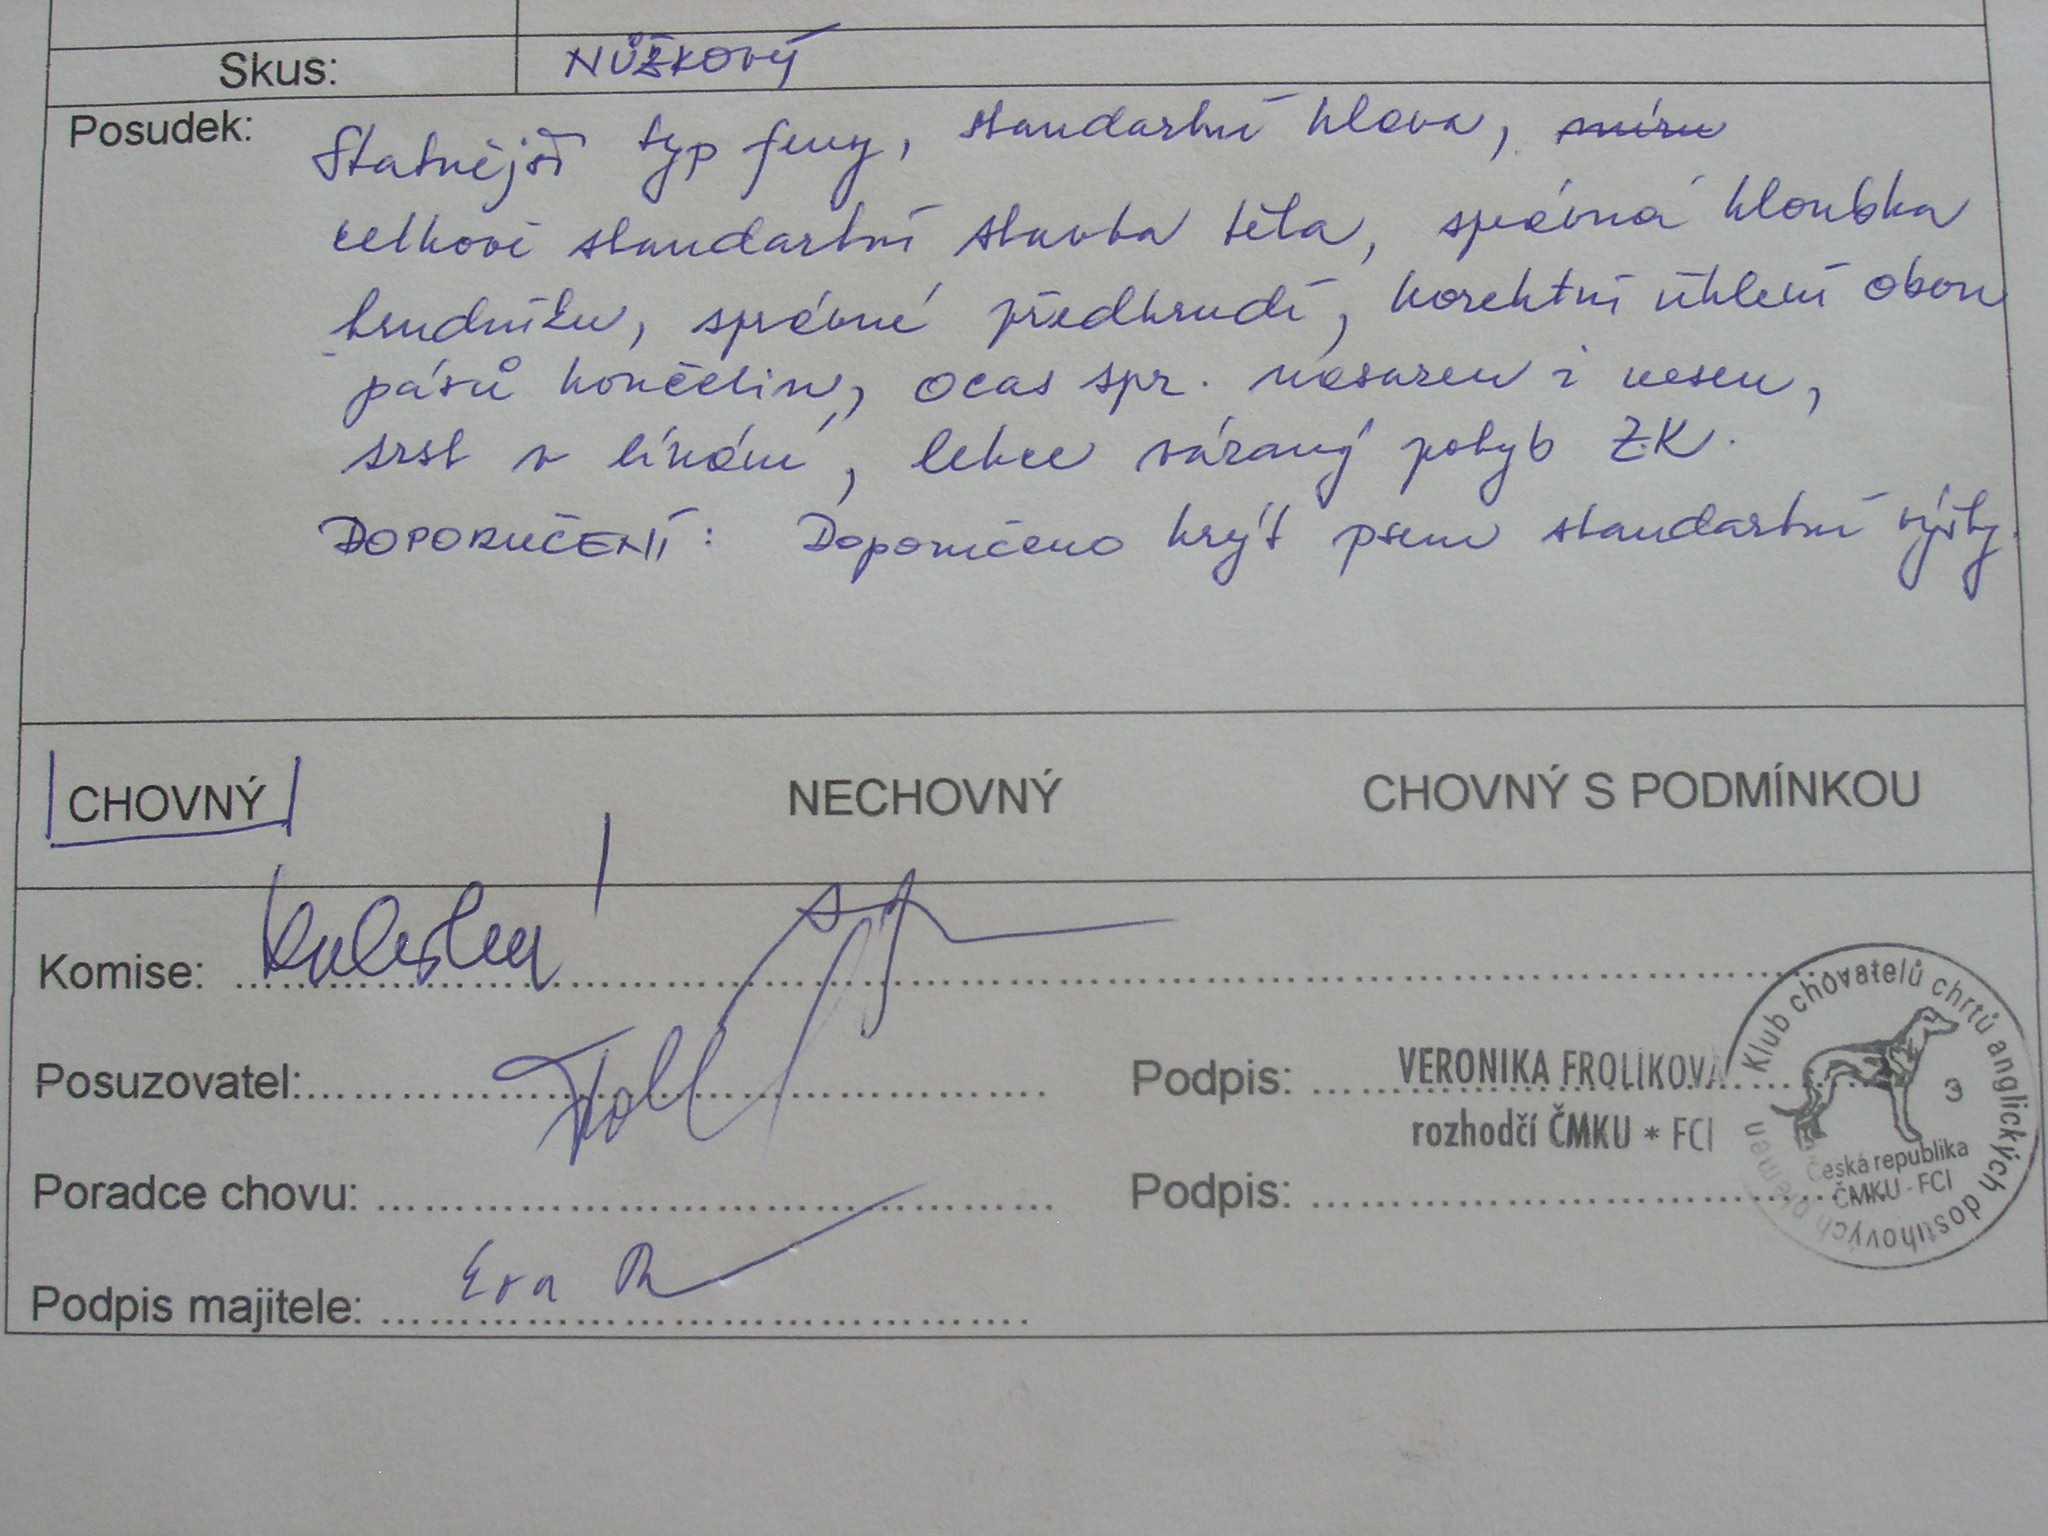 Skus: NŮŽKOVÝ
Posudek: Statnější typ feny, standartní hlava, míru
celkově standartní stavba těla, správná hloubka
hrudníku, správné předhrudí, korektní úhlení obou
pásů končetin, ocas spr. nasazen i nesen,
srst v línání, lehce vázaný pohyb Z.K.
DOPORUČENÍ: Doporučeno krýt psem standartní výšky.
CHOVNÝ NECHOVNÝ CHOVNÝ S PODMÍNKOU
Komise:
Posuzovatel: Podpis: VERONIKA FROLÍKOVÁ
rozhodčí ČMKU * FCI
Poradce chovu: Podpis:
Podpis majitele: Eva
Klub chovatelů chrtů anglických dostihových plemen
3
Česká republika
ČMKU - FCI